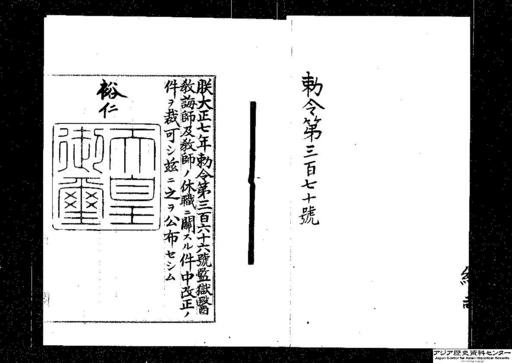 勅令第三百七十號
朕大正七年勅令第三百六十六號監獄醫
教誨師及教師ノ休職ニ關スル件中改正ノ
件ヲ裁可シ玆ニ之ヲ公布セシム
裕仁
天皇
御璽
アジア歴史資料センター
Japan Center for Asian Historical Records